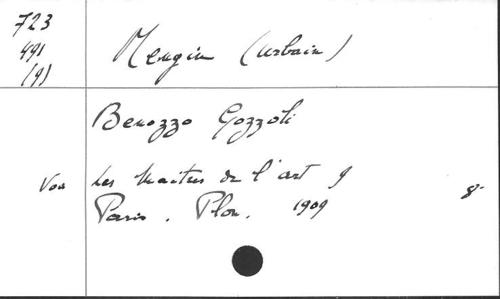 723
491
(9)
Mengin (Urbain)
Benozzo Gozzoli
Voir Les Maitres de l'art 9
Paris. Plon. 1909 8°